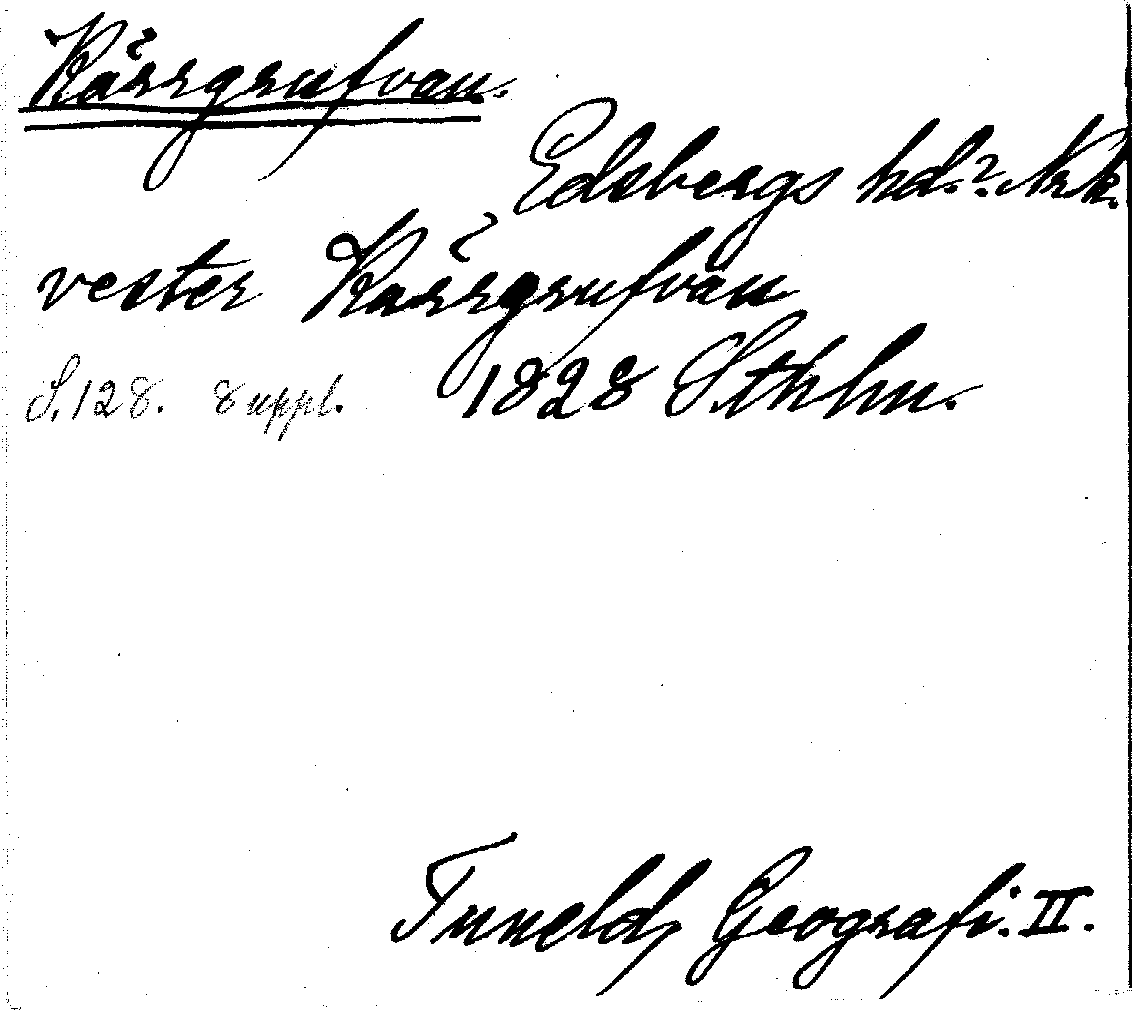 Kärrgrufvan.
Edsbergs hd.? Nrk.
vester Kärrgrufvan
S. 128. Suppl. 1828 Sthlm.
Tuneld, Geografi. II.